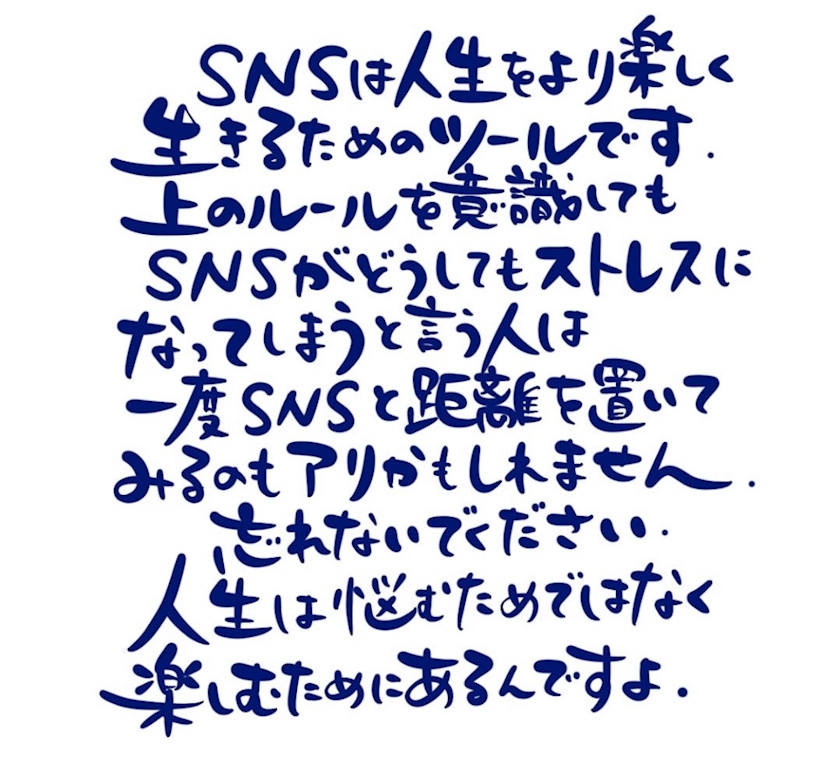 SNSは人生をより楽しく
生きるためのツールです.
上のルールを意識しても
SNSがどうしてもストレスに
なってしまうと言う人は
一度SNSと距離を置いて
みるのもアリかもしれません.
忘れないでください.
人生は悩むためではなく
楽しむためにあるんですよ.